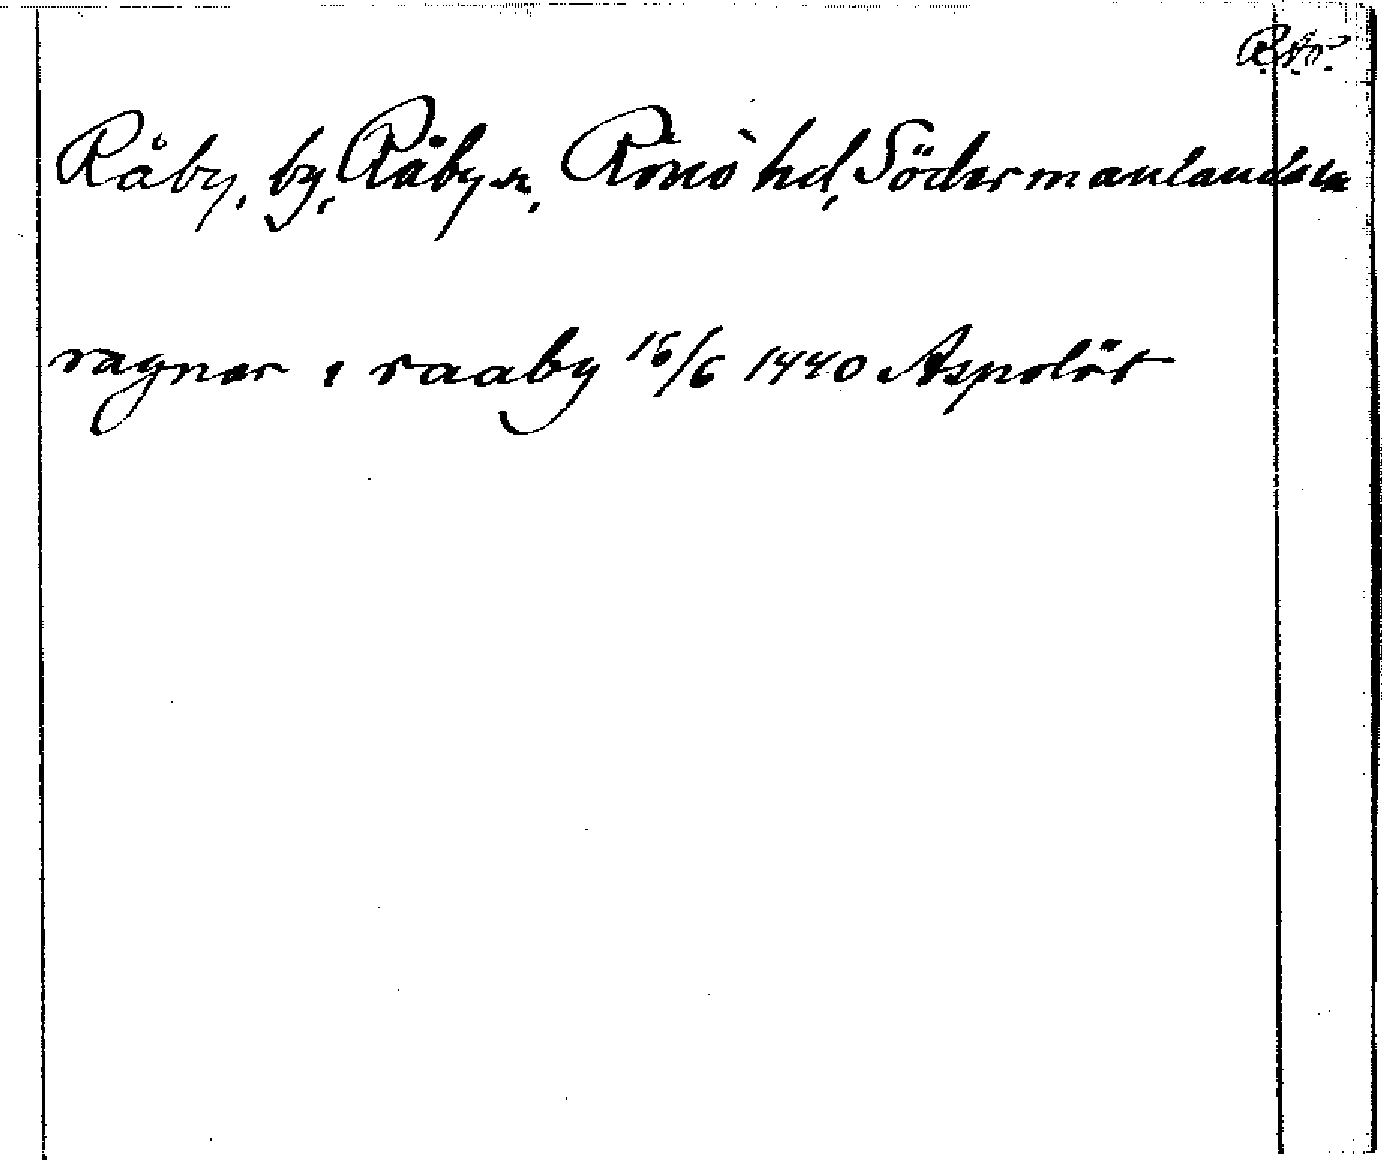 R. Ap.
Råby, by, Råby sn, Rönö hd, Södermanlands län
ragnar i raaby 15/6 1440 Aspolöt